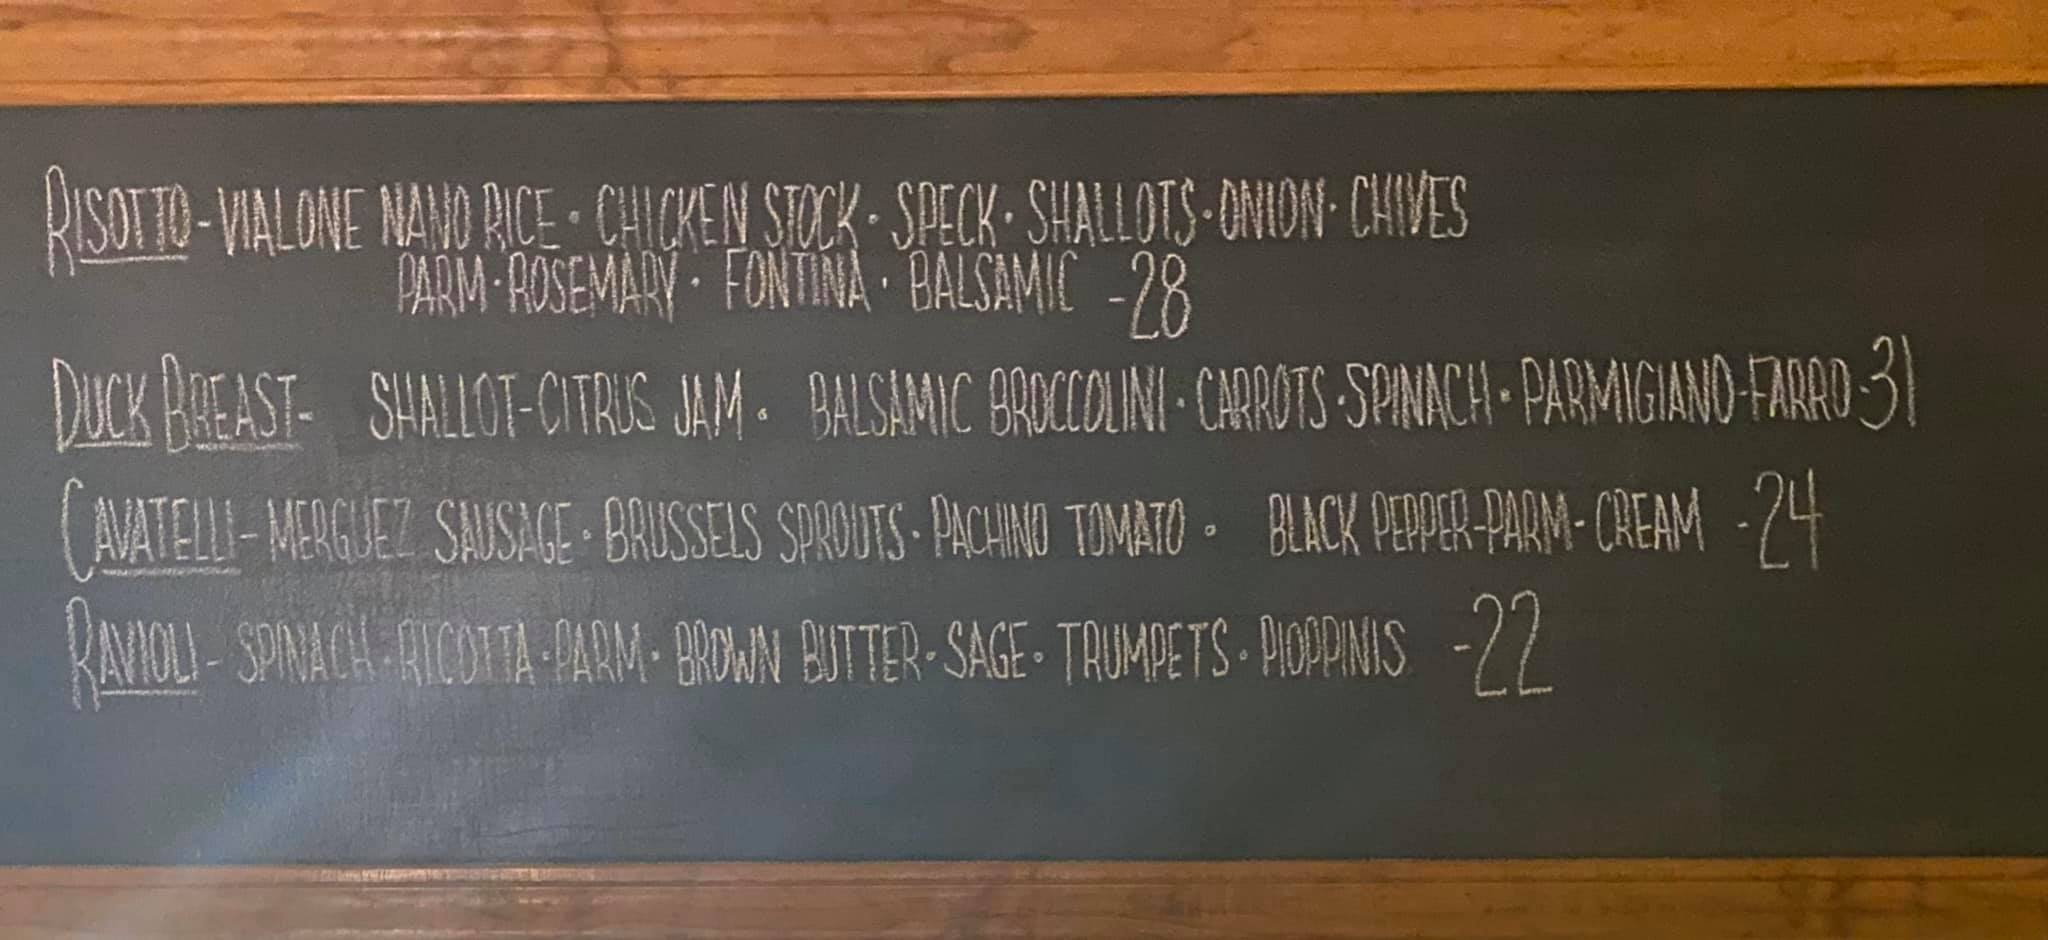 RISOTTO - VIALONE NANO RICE · CHICKEN STOCK · SPECK · SHALLOTS · ONION · CHIVES
PARM · ROSEMARY · FONTINA · BALSAMIC - 28
DUCK BREAST - SHALLOT-CITRUS JAM · BALSAMIC BROCCOLINI · CARROTS · SPINACH · PARMIGIANO-FARRO - 31
CAVATELLI - MERGUEZ SAUSAGE · BRUSSELS SPROUTS · PACHINO TOMATO · BLACK PEPPER-PARM-CREAM - 24
RAVIOLI - SPINACH · RICOTTA · PARM · BROWN BUTTER · SAGE · TRUMPETS · PIOPPINIS - 22